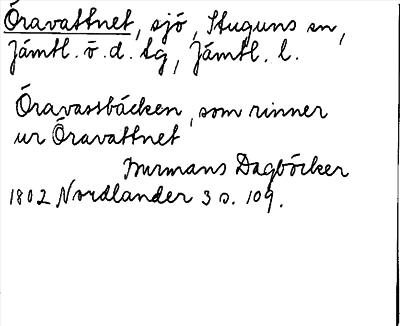 Öravattnet, sjö, Stuguns sn,
Jämtl. ö. d. tg, Jämtl. l.
Öravassbäcken, som rinner
ur Öravattnet
Burmans Dagböcker
1802 Nordlander 3 s. 109.